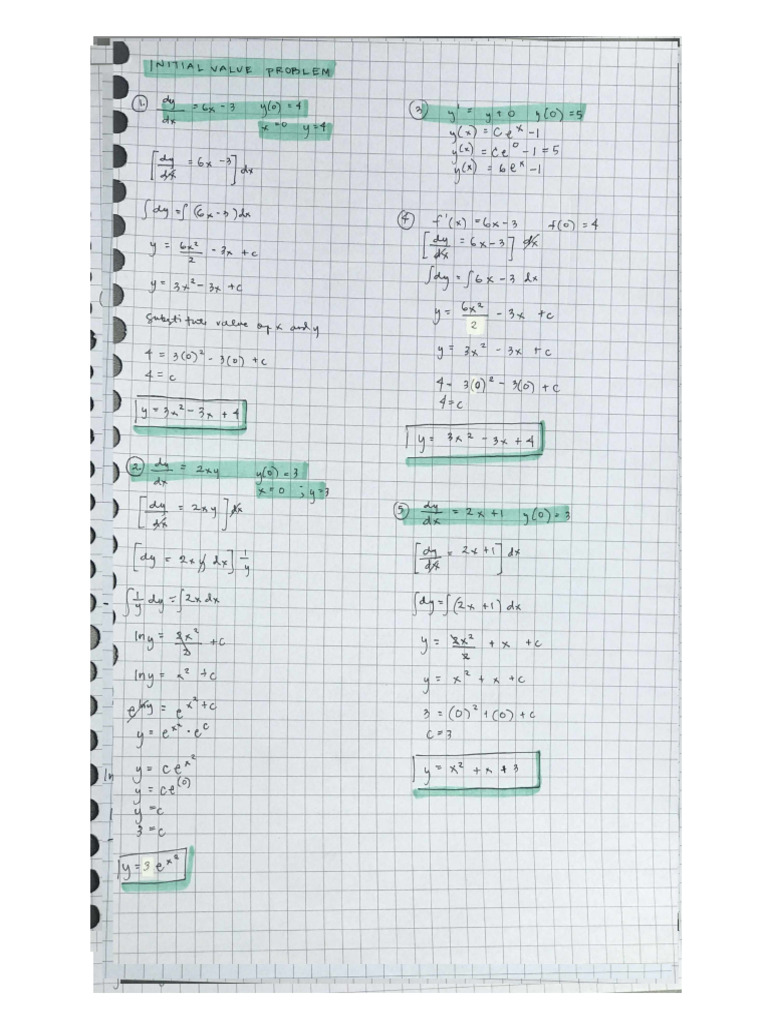 INITIAL VALUE PROBLEM
① dy/dx = 6x - 3 y(0) = 4
x = 0 y = 4
[dy/dx = 6x - 3] dx
∫dy = ∫(6x - 3) dx
y = 6x²/2 - 3x + c
y = 3x² - 3x + c
Substitute value of x and y
4 = 3(0)² - 3(0) + c
4 = c
y = 3x² - 3x + 4
② dy/dx = 2xy y(0) = 3
x = 0 ; y = 3
[dy/dx = 2xy] dx
[dy = 2xy dx] 1/y
∫ 1/y dy = ∫2x dx
ln y = 2x²/2 + c
ln y = x² + c
e^ln y = e^x² + c
y = e^x² · e^c
y = ce^x²
y = ce^(0)
y = c
3 = c
y = 3 e^x²
③ y' = y + 0 y(0) = 5
y(x) = Ce^x - 1
y(x) = Ce^0 - 1 = 5
y(x) = 6e^x - 1
④ f'(x) = 6x - 3 f(0) = 4
[dy/dx = 6x - 3] dx
∫dy = ∫6x - 3 dx
y = 6x²/2 - 3x + c
y = 3x² - 3x + c
4 = 3(0)² - 3(0) + c
4 = c
y = 3x² - 3x + 4
⑤ dy/dx = 2x + 1 y(0) = 3
[dy/dx = 2x + 1] dx
∫dy = ∫(2x + 1) dx
y = 2x²/2 + x + c
y = x² + x + c
3 = (0)² + (0) + c
c = 3
y = x² + x + 3